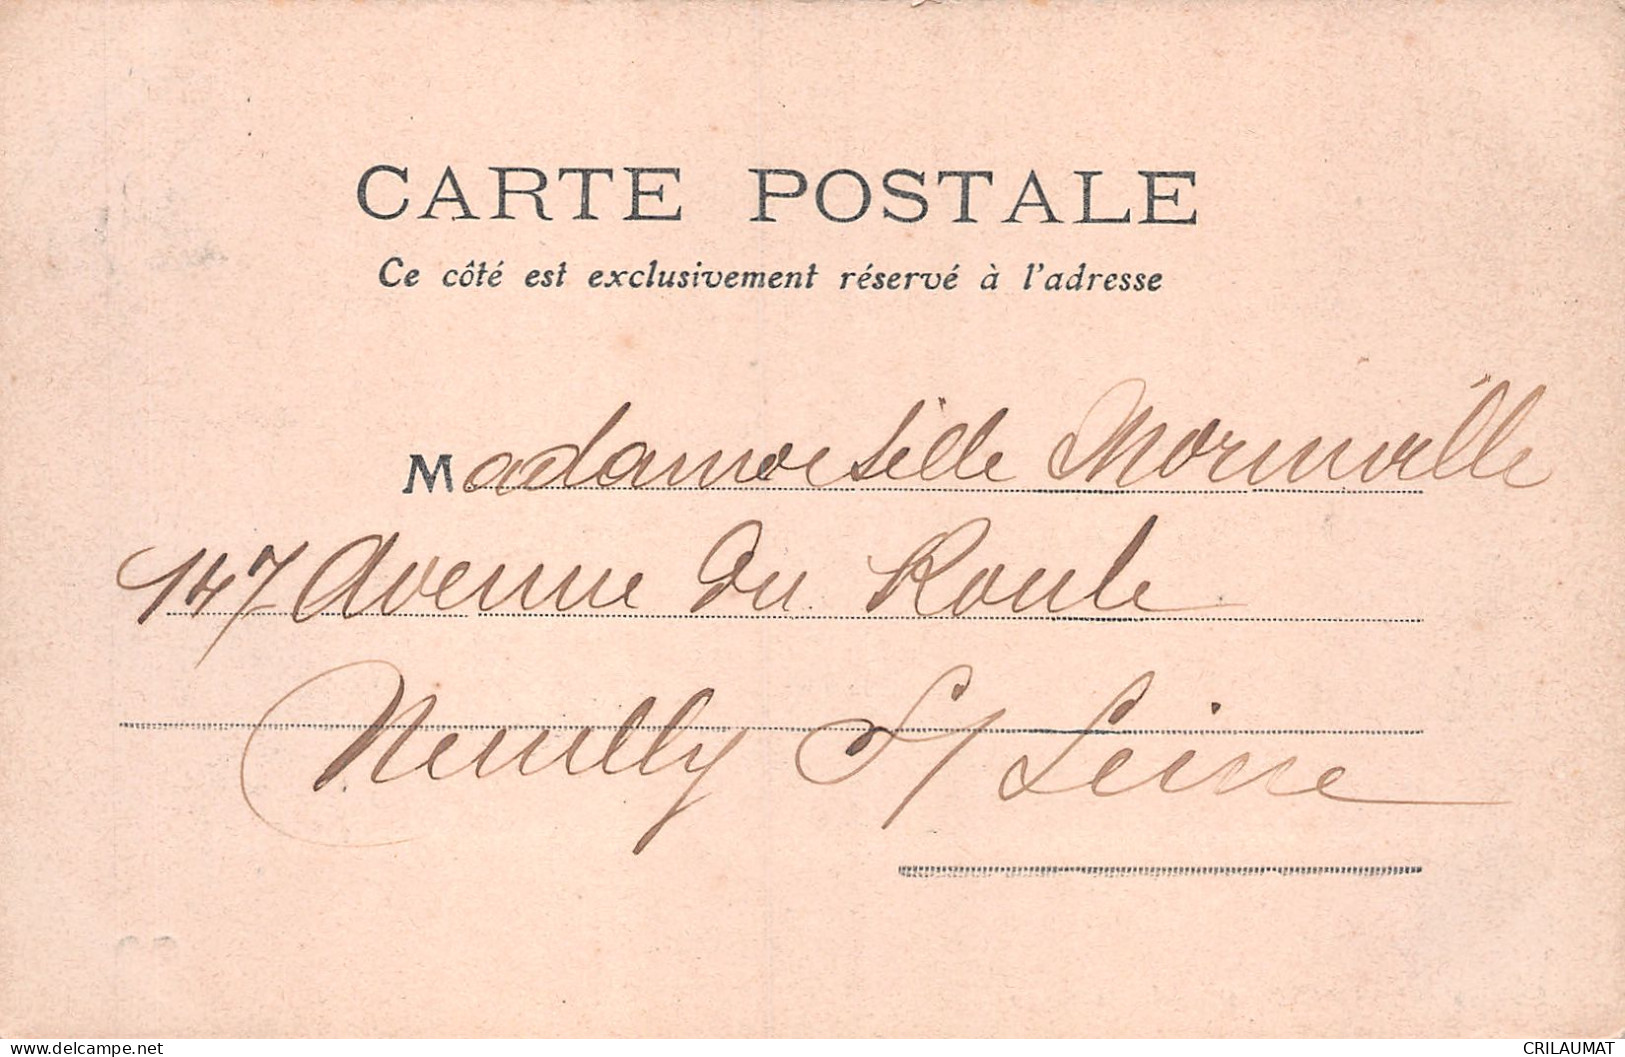 CARTE POSTALE
Ce côté est exclusivement réservé à l'adresse
Mademoiselle
147 Avenue Du Roule
Neuilly S/ Seine
www.delcampe.net
CRILAUMAT